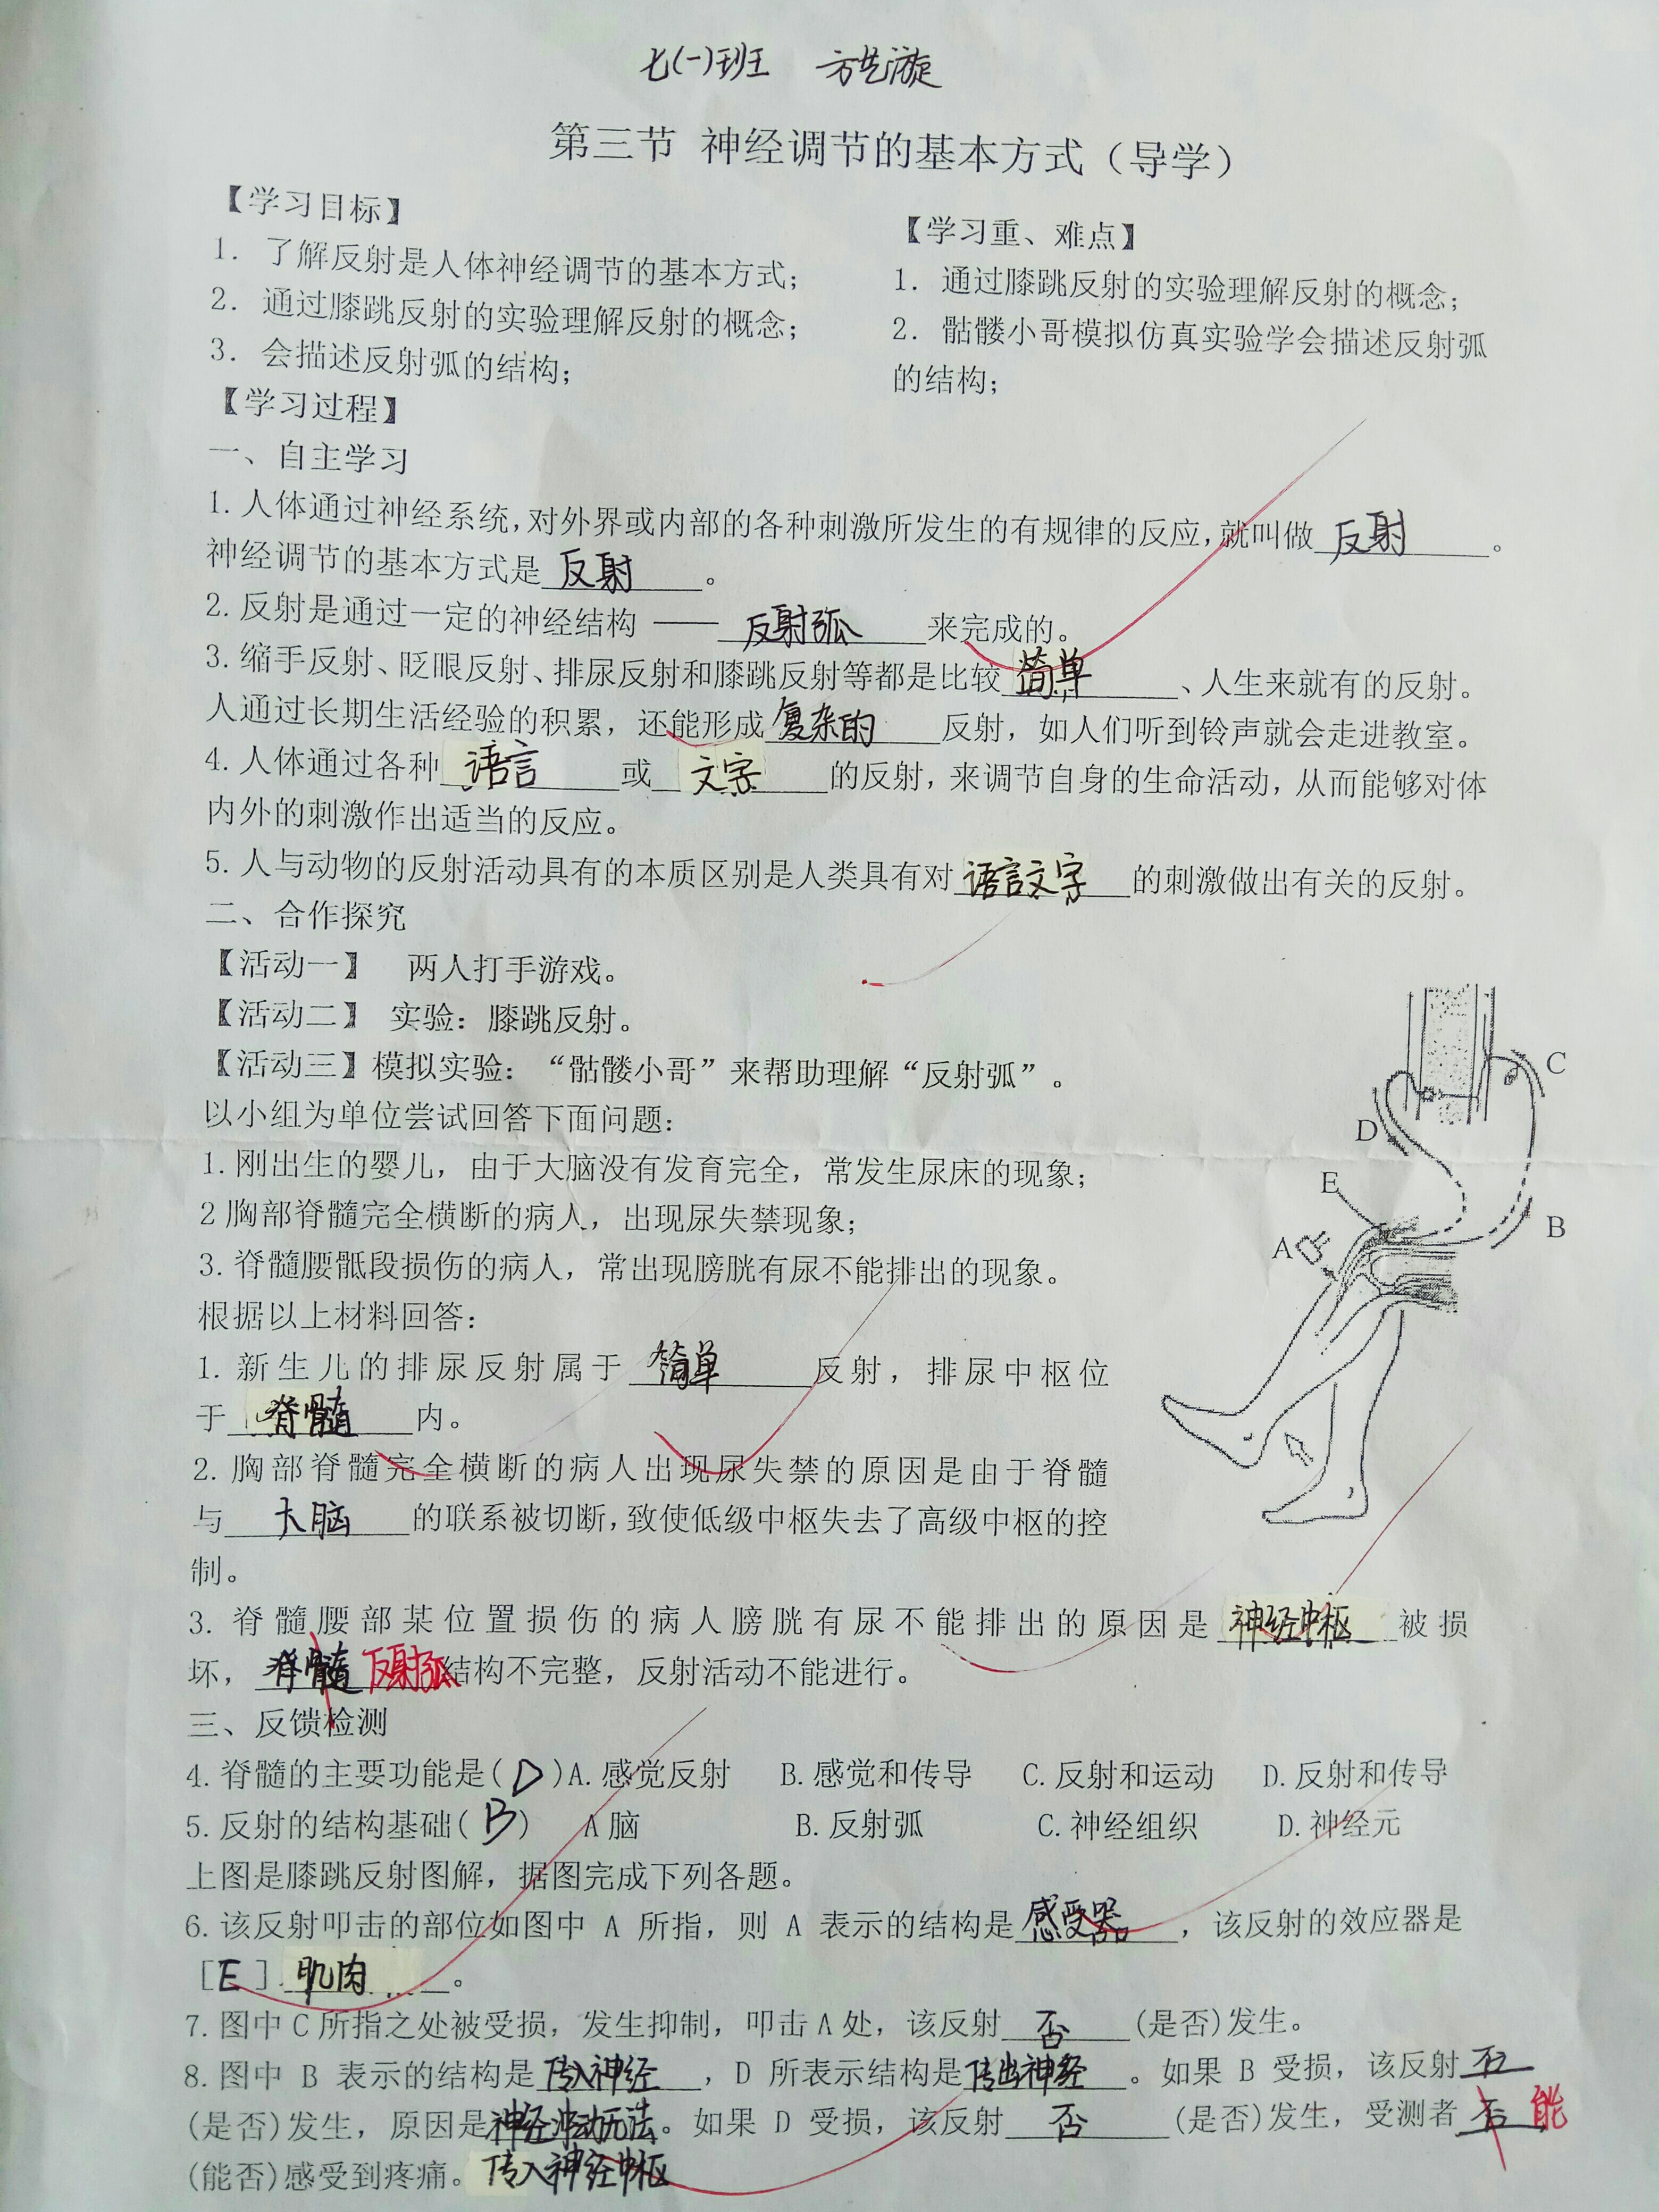 七(一)班 方艺漩
第三节 神经调节的基本方式（导学）
【学习目标】
1. 了解反射是人体神经调节的基本方式；
2. 通过膝跳反射的实验理解反射的概念；
3. 会描述反射弧的结构；
【学习重、难点】
1. 通过膝跳反射的实验理解反射的概念；
2. 骷髅小哥模拟仿真实验学会描述反射弧
的结构；
【学习过程】
一、自主学习
1. 人体通过神经系统,对外界或内部的各种刺激所发生的有规律的反应,就叫做 反射 。
神经调节的基本方式是 反射 。
2. 反射是通过一定的神经结构 —— 反射弧 来完成的。
3. 缩手反射、眨眼反射、排尿反射和膝跳反射等都是比较 简单 、人生来就有的反射。
人通过长期生活经验的积累，还能形成 复杂的 反射，如人们听到铃声就会走进教室。
4. 人体通过各种 语言 或 文字 的反射，来调节自身的生命活动，从而能够对体
内外的刺激作出适当的反应。
5. 人与动物的反射活动具有的本质区别是人类具有对 语言文字 的刺激做出有关的反射。
二、合作探究
【活动一】 两人打手游戏。
【活动二】 实验：膝跳反射。
【活动三】模拟实验：“骷髅小哥”来帮助理解“反射弧”。
以小组为单位尝试回答下面问题：
1. 刚出生的婴儿，由于大脑没有发育完全，常发生尿床的现象；
2 胸部脊髓完全横断的病人，出现尿失禁现象；
3. 脊髓腰骶段损伤的病人，常出现膀胱有尿不能排出的现象。
根据以上材料回答：
1. 新生儿的排尿反射属于 简单 反射，排尿中枢位
于 脊髓 内。
2. 胸部脊髓完全横断的病人出现尿失禁的原因是由于脊髓
与 大脑 的联系被切断,致使低级中枢失去了高级中枢的控
制。
C
D
E
B
A
3. 脊髓腰部某位置损伤的病人膀胱有尿不能排出的原因是 神经中枢 被损
坏， 脊髓 反射弧 结构不完整，反射活动不能进行。
三、反馈检测
4. 脊髓的主要功能是( D )A. 感觉反射 B. 感觉和传导 C. 反射和运动 D. 反射和传导
5. 反射的结构基础( B ) A 脑 B. 反射弧 C. 神经组织 D. 神经元
上图是膝跳反射图解，据图完成下列各题。
6. 该反射叩击的部位如图中 A 所指，则 A 表示的结构是 感受器 ，该反射的效应器是
[ E ] 肌肉 。
7. 图中 C 所指之处被受损，发生抑制，叩击 A 处，该反射 否 (是否)发生。
8. 图中 B 表示的结构是 传入神经 ，D 所表示结构是 传出神经 。如果 B 受损，该反射 否
(是否)发生，原因是 神经冲动无法 。如果 D 受损，该反射 否 (是否)发生，受测者 否 能
(能否)感受到疼痛。 传入神经中枢